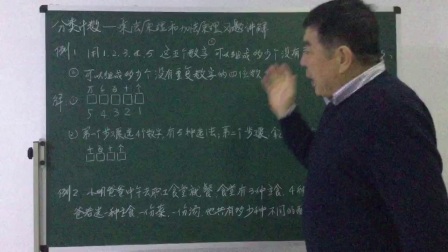 分类计数——乘法原理和加法原理习题讲解
例1 用1、2、3、4、5 这五个数字 可以组成多少个没有
② 可以组成多少个没有重复数字的四位数
解① 万 千 百 十 个
5 4 3 2 1
② 第一个步骤选千位数字,有5种选法,第二个步骤
千 百 十 个
例2、小明爸爸中午去职工食堂就餐 食堂有3种主食、4
爸爸选一种主食 一份菜、一份汤,他共有多少种不同的